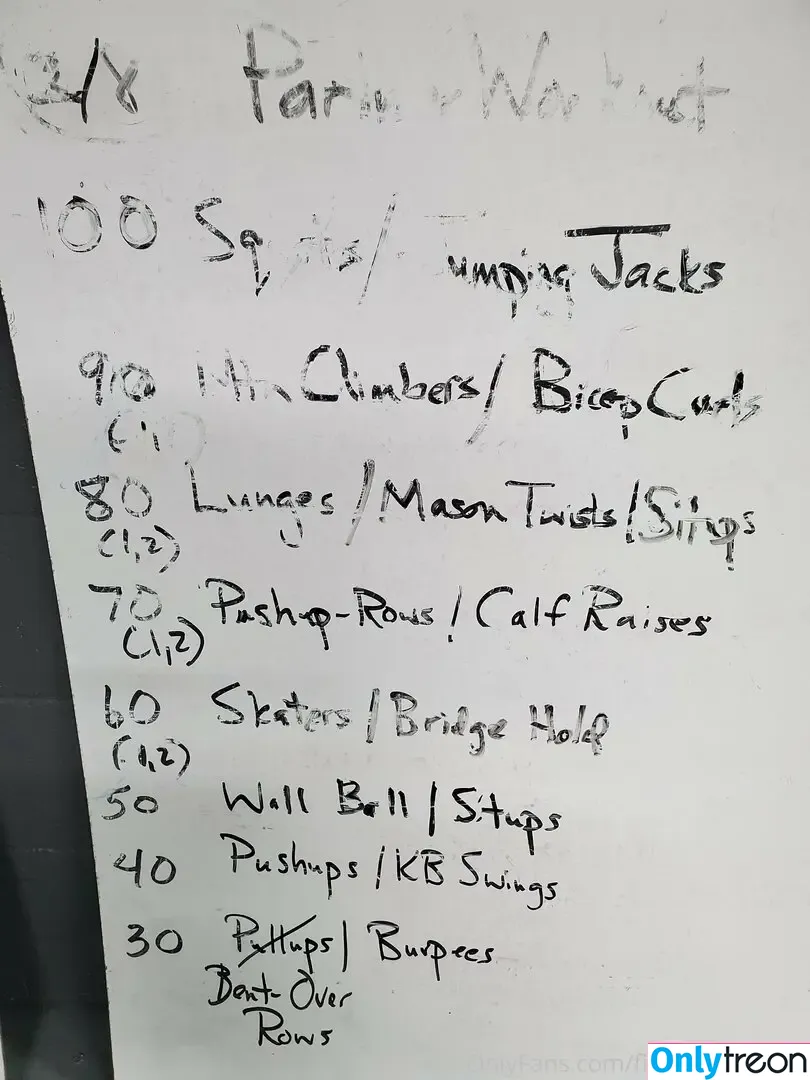 3/8 Partner Workout
100 Squats / Jumping Jacks
90 Mtn Climbers / Bicep Curls
80 Lunges / Mason Twists / Situps
(1,2)
70 Pushup-Rows / Calf Raises
(1,2)
60 Skaters / Bridge Hold
(1,2)
50 Wall Ball / Situps
40 Pushups / KB Swings
30 Pullups / Burpees
Bent-Over
Rows
OnlyFans.com/f
Onlytreon